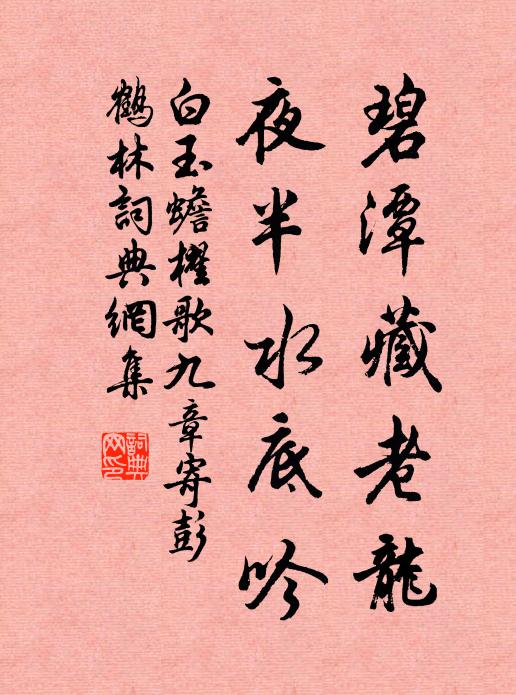 碧潭藏老龍
夜半水底吟
白玉蟾櫂歌九章寄彭
鶴林詞典網集
詞典網印